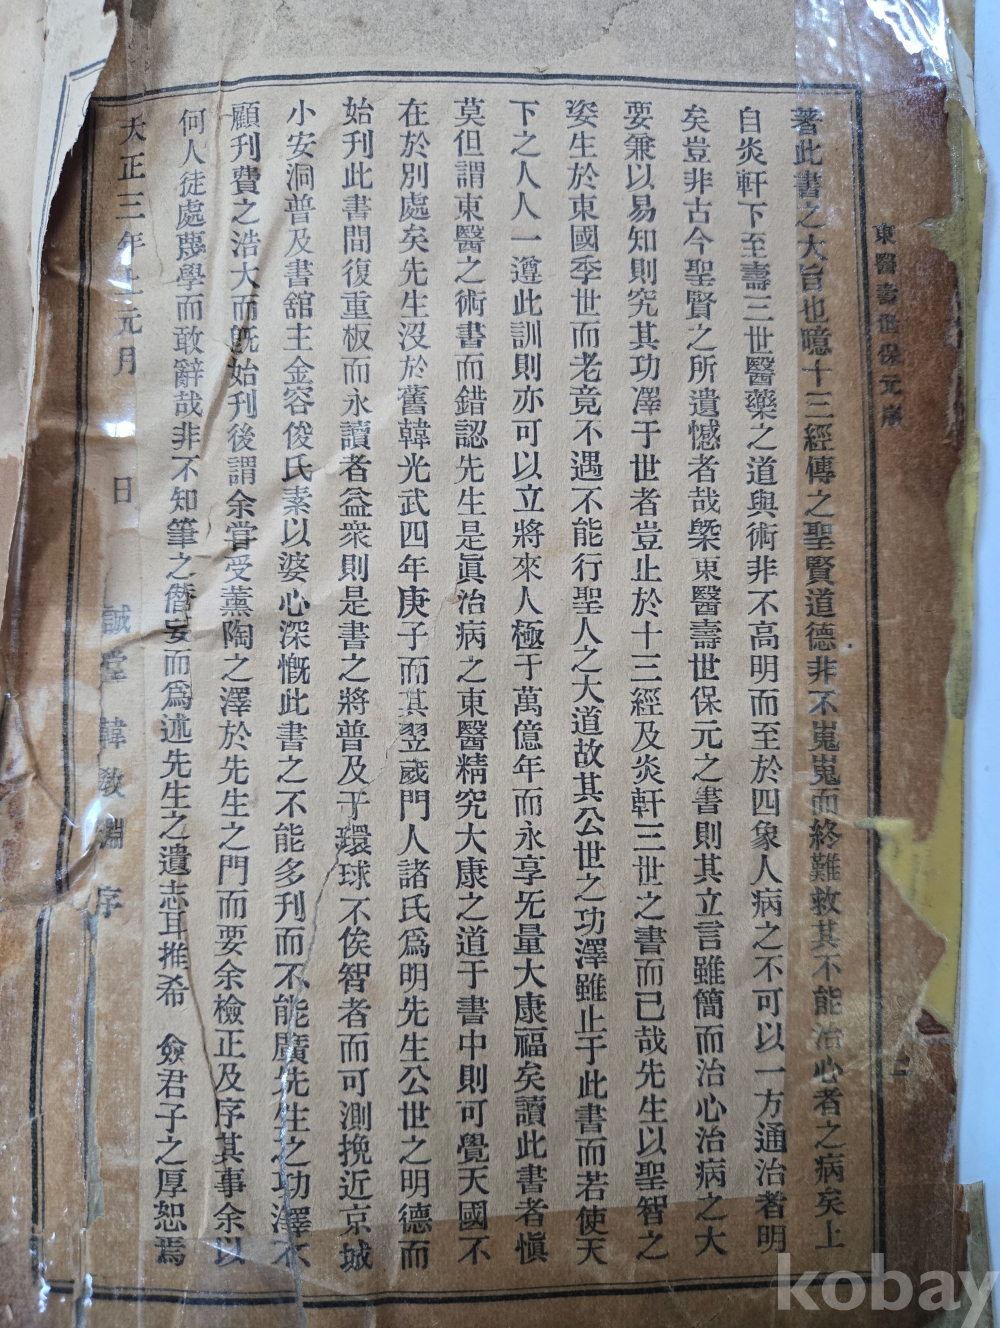 東醫壽世保元序
二
著此書之大旨也噫十三經傳之聖賢道德非不嵬嵬而終難救其不能治心者之病矣上
自炎軒下至壽三世醫藥之道與術非不高明而至於四象人病之不可以一方通治者明
矣豈非古今聖賢之所遺憾者哉槩東醫壽世保元之書則其立言雖簡而治心治病之大
要兼以易知則究其功澤于世者豈止於十三經及炎軒三世之書而已哉先生以聖智之
姿生於東國季世而老竟不遇不能行聖人之大道故其公世之功澤雖止于此書而若使天
下之人人一遵此訓則亦可以立將來人極于萬億年而永享旡量大康福矣讀此書者愼
莫但謂東醫之術書而錯認先生是眞治病之東醫精究大康之道于書中則可覺天國不
在於別處矣先生沒於舊韓光武四年庚子而其翌歲門人諸氏爲明先生公世之明德而
始刊此書間復重板而永讀者益衆則是書之將普及于環球不俟智者而可測挽近京城
小安洞普及書舘主金容俊氏素以婆心深慨此書之不能多刊而不能廣先生之功澤不
顧刊費之浩大而旣始刊後謂余甞受薰陶之澤於先生之門而要余檢正及序其事余以
何人徒處蔑學而敢辭哉非不知筆之僭妄而爲述先生之遺志耳推希 僉君子之厚恕焉
大正三年十二元月 日 誠堂 韓敎淵 序